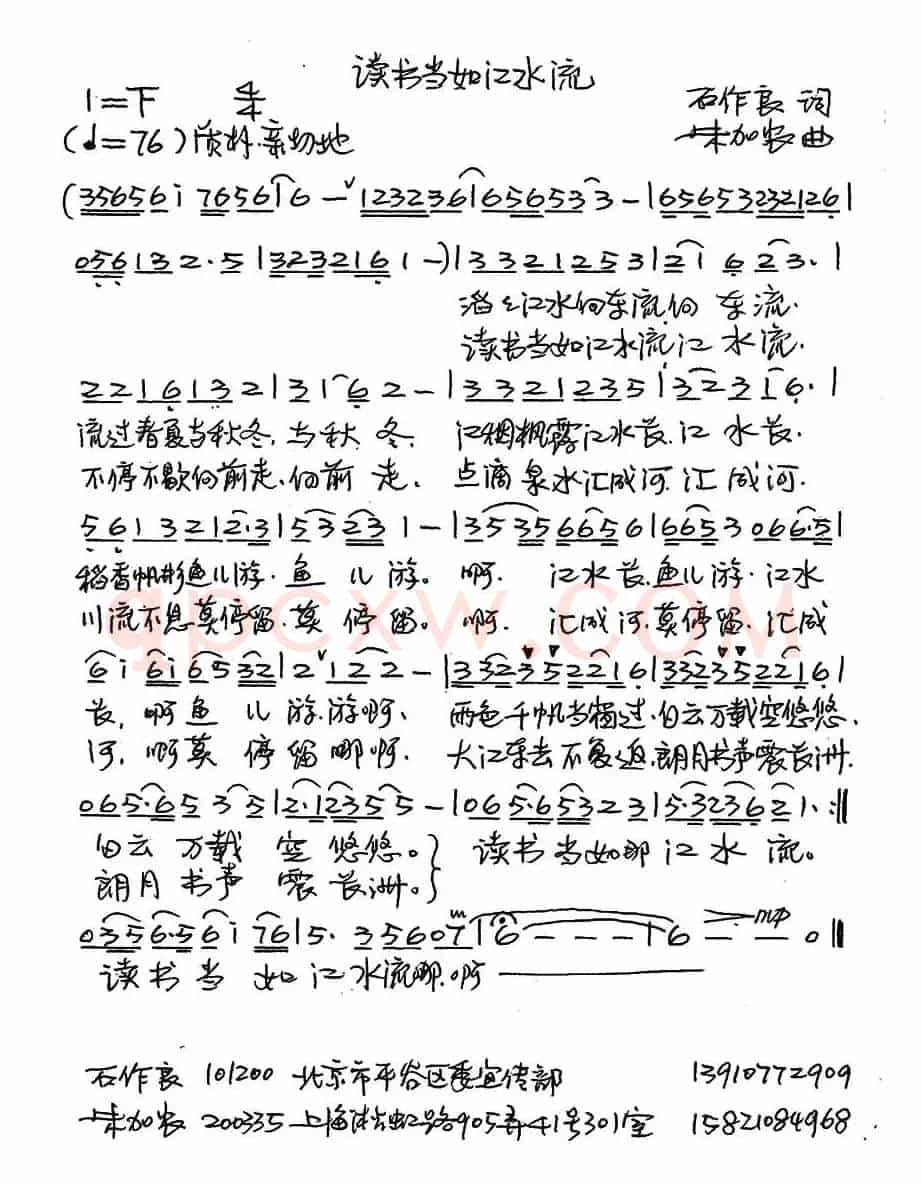 读书当如江水流
1=F 4/4 石作良 词
(♩=76)质朴.亲切地 朱加农曲
(35656i 765616 — 123236 16565 33 — 65653232126
056132·5 3232161 —) 3321253 21 6 23·
滔々江水向东流,向 东 流.
读书当如江水流,江 水 流.
2216132 31 62 — 3321235 323 16·
流过春夏与秋冬,与秋 冬, 江 枫露江水长,江 水 长.
不停不歇向前走,向前 走, 点滴泉水汇成河,汇 成 河.
5613212·3 5323 1 — 3535665 6 6653 066·5
稻香帆影鱼儿游.鱼 儿 游。 啊. 江水长,鱼儿游.江水
川流不息莫停留.莫 停 留。 啊. 汇成河,莫停留,汇成
6i 6i6532 2 122 — 33235 2216 33235 2216
长, 啊鱼 儿 游.游啊、 两色千帆当 过,白云万载空悠悠,
河, 啊莫 停 留哪啊. 大江东去不复返,朗月书声震长洲.
065·65 35 2·12355 — 065·653 23 5·32362 1·
白云 万载 空 悠悠。 读书 当如那 江 水 流。
朗月 书声 震 长洲。
0356·56i 76 5· 35607 6 — — — 6 — — 0 mp
读书 当 如 江 水流哪.啊
石作良 101200 北京市平谷区委宣传部 13910772909
朱加农 200335 上海 虹路905弄41号301室 15821084968
qpcxw.com